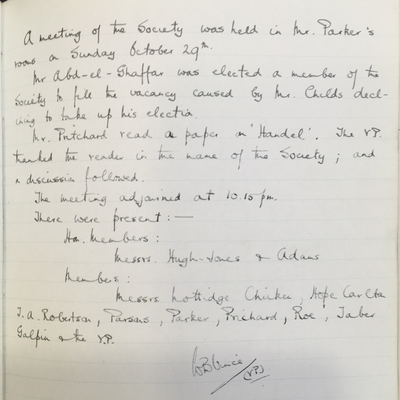 A meeting of the Society was held in Mr. Parker's
rooms on Sunday October 29th.
Mr Abd-el-Ghaffar was elected a member of the
Society to fill the vacancy caused by Mr. Childs decl-
ining to take up his election.
Mr. Pritchard read a paper on 'Handel'. The V.P.
thanked the reader in the name of the Society; and
a discussion followed.
The meeting adjourned at 10.15 pm.
There were present :—
Hon. Members :
Messrs. Hugh-Jones & Adams
Members :
Messrs Lottidge Chicken, Hope Carlton
J.A. Robertson, Parsons, Parker, Prichard, Roe, Jaber
Galpin & the V.P.
(V.P.)